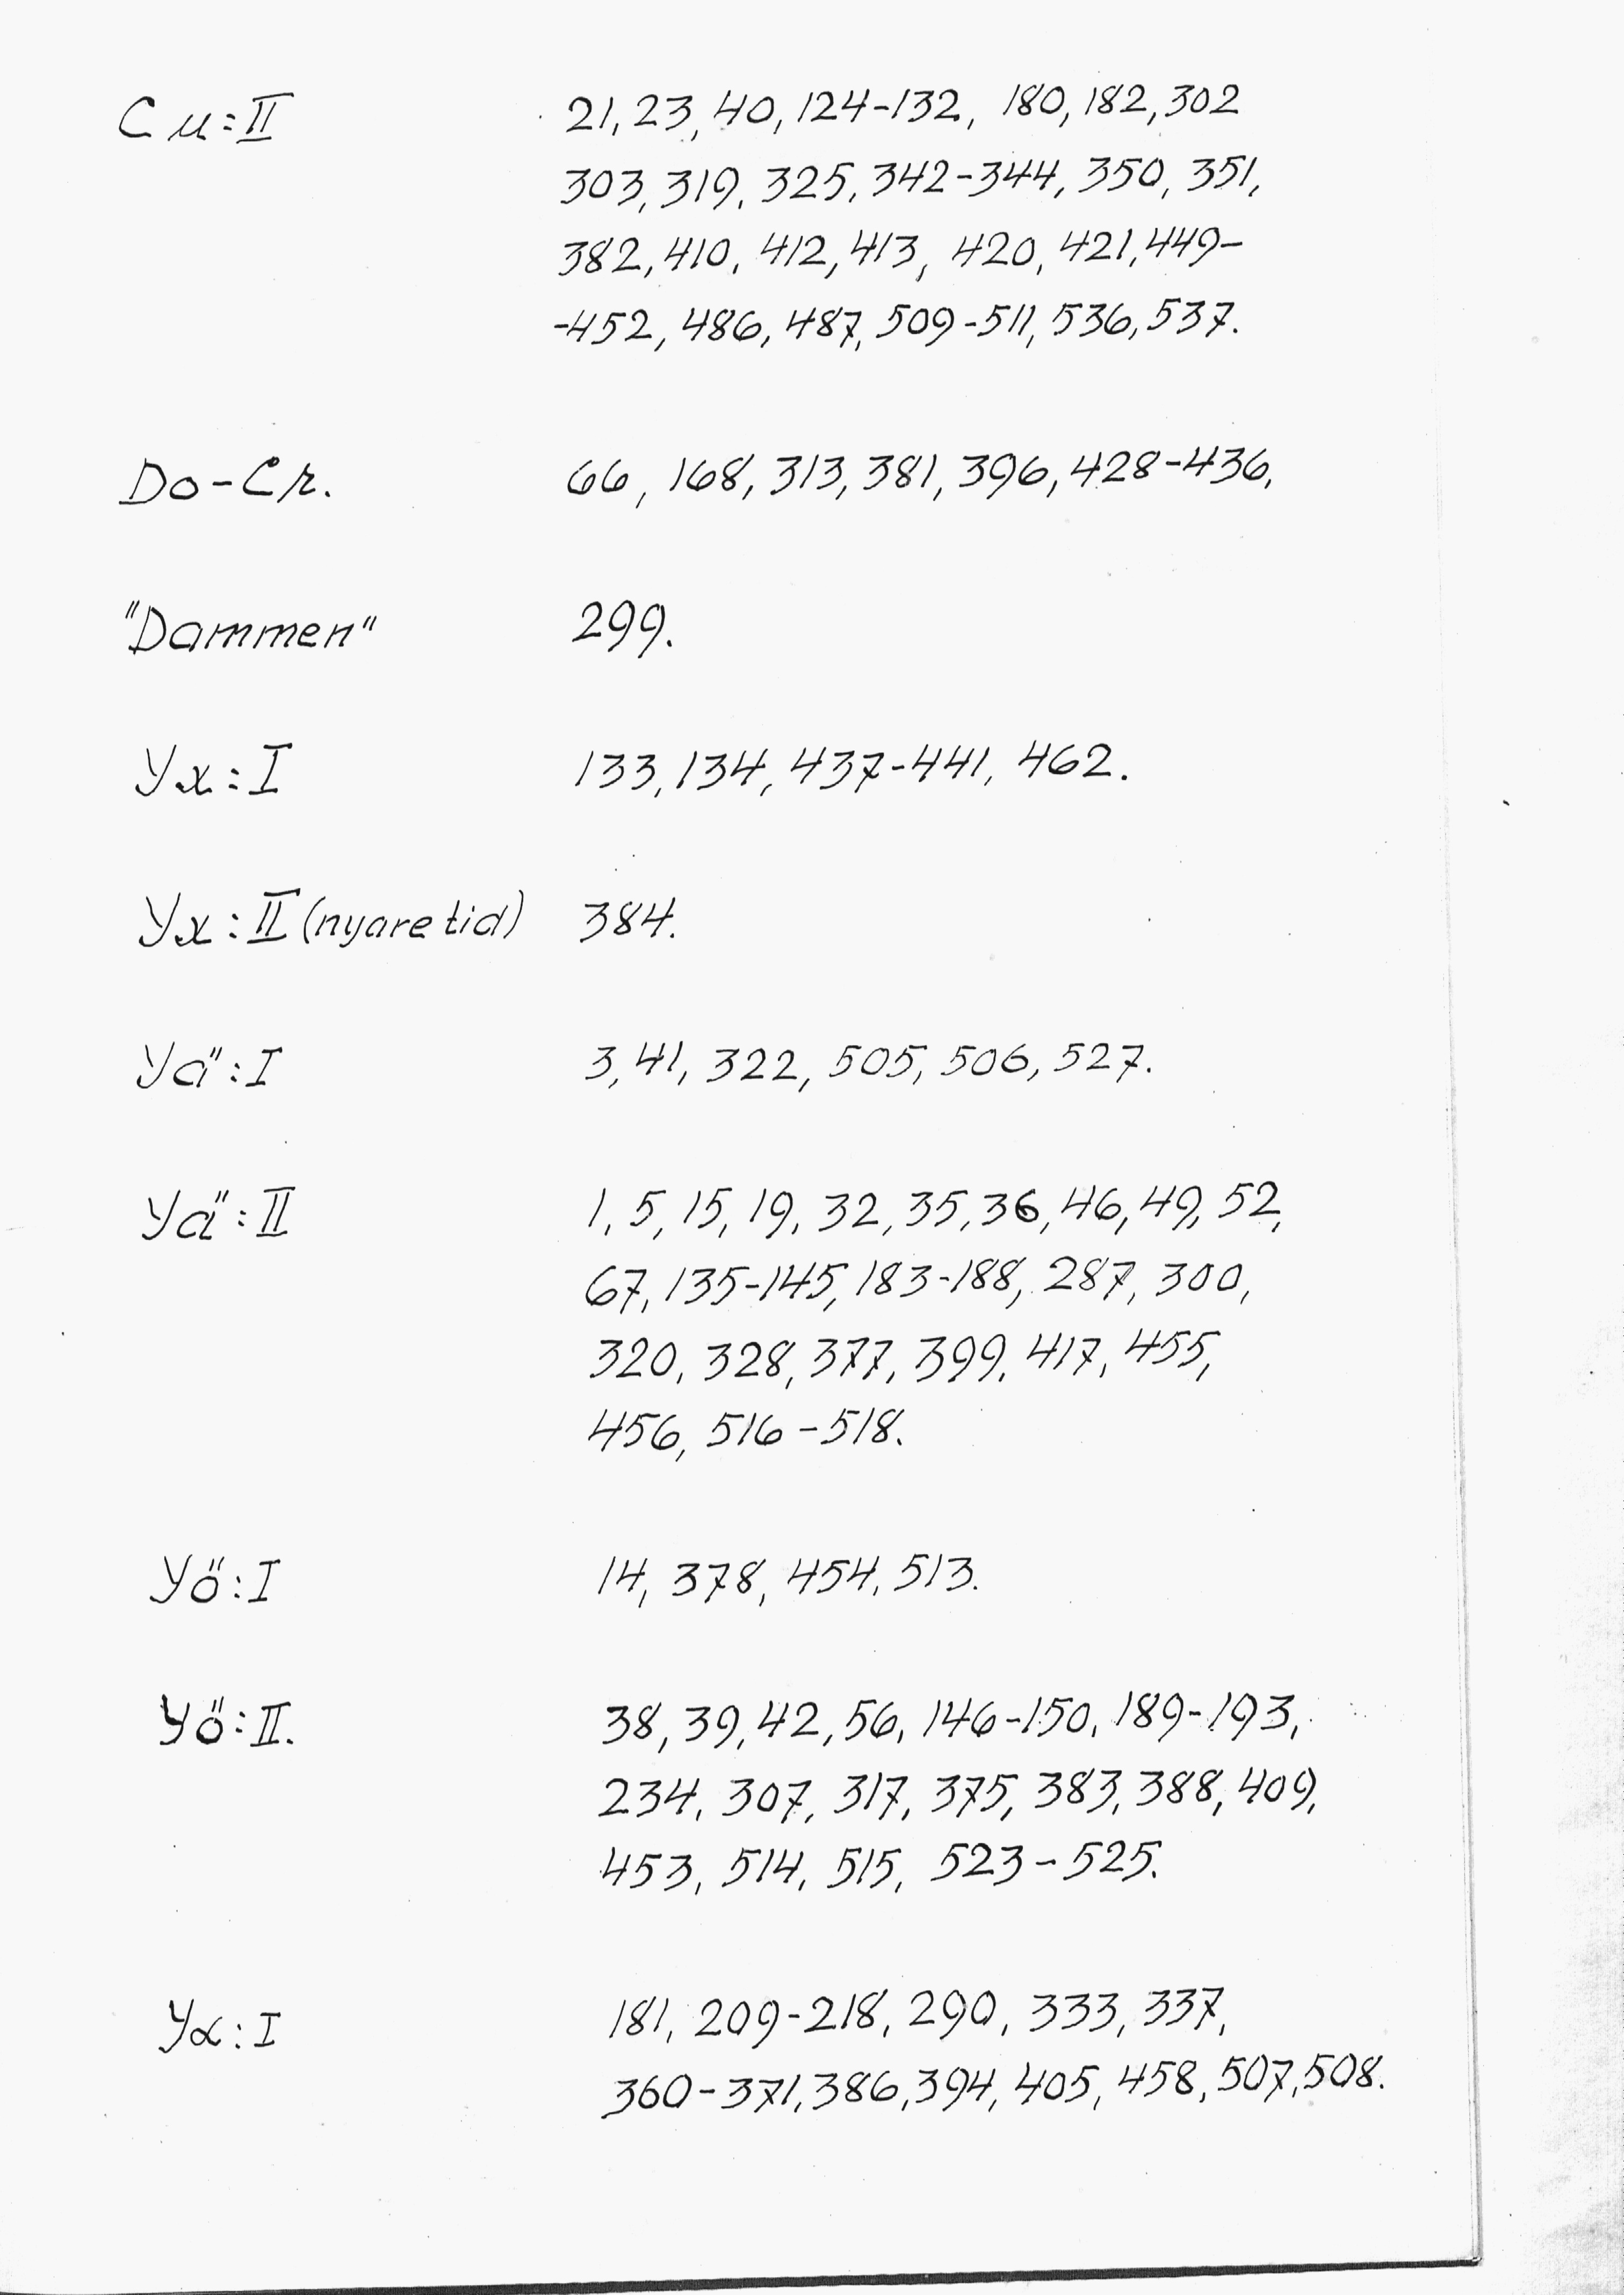 Cu:II 21, 23, 40, 124-132, 180, 182, 302
303, 319, 325, 342-344, 350, 351,
382, 410, 412, 413, 420, 421, 449-
-452, 486, 487, 509-511, 536, 537.
Do-Cr. 66, 168, 313, 381, 396, 428-436,
"Dammen" 299.
Yx:I 133, 134, 437-441, 462.
Yx:II (nyare tid) 384.
Yä:I 3, 41, 322, 505, 506, 527.
Yä:II 1, 5, 15, 19, 32, 35, 36, 46, 49, 52,
67, 135-145, 183-188, 287, 300,
320, 328, 377, 399, 417, 455,
456, 516-518.
Yö:I 14, 378, 454, 513.
Yö:II. 38, 39, 42, 56, 146-150, 189-193,
234, 307, 317, 375, 383, 388, 409,
453, 514, 515, 523-525.
Yα:I 181, 209-218, 290, 333, 337,
360-371, 386, 394, 405, 458, 507, 508.